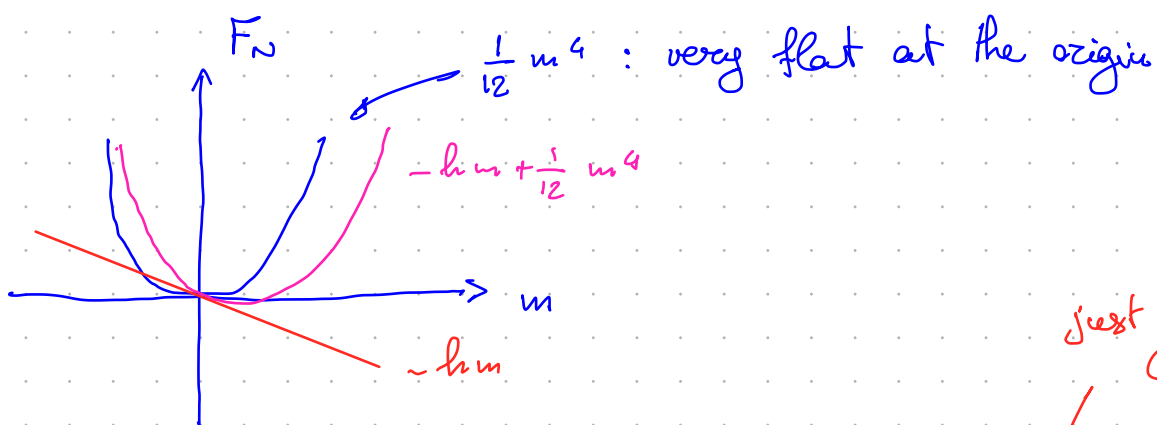 F_N
1/12 m^4 : very flat at the origin
-hm + 1/12 m^4
m
-hm
just
(